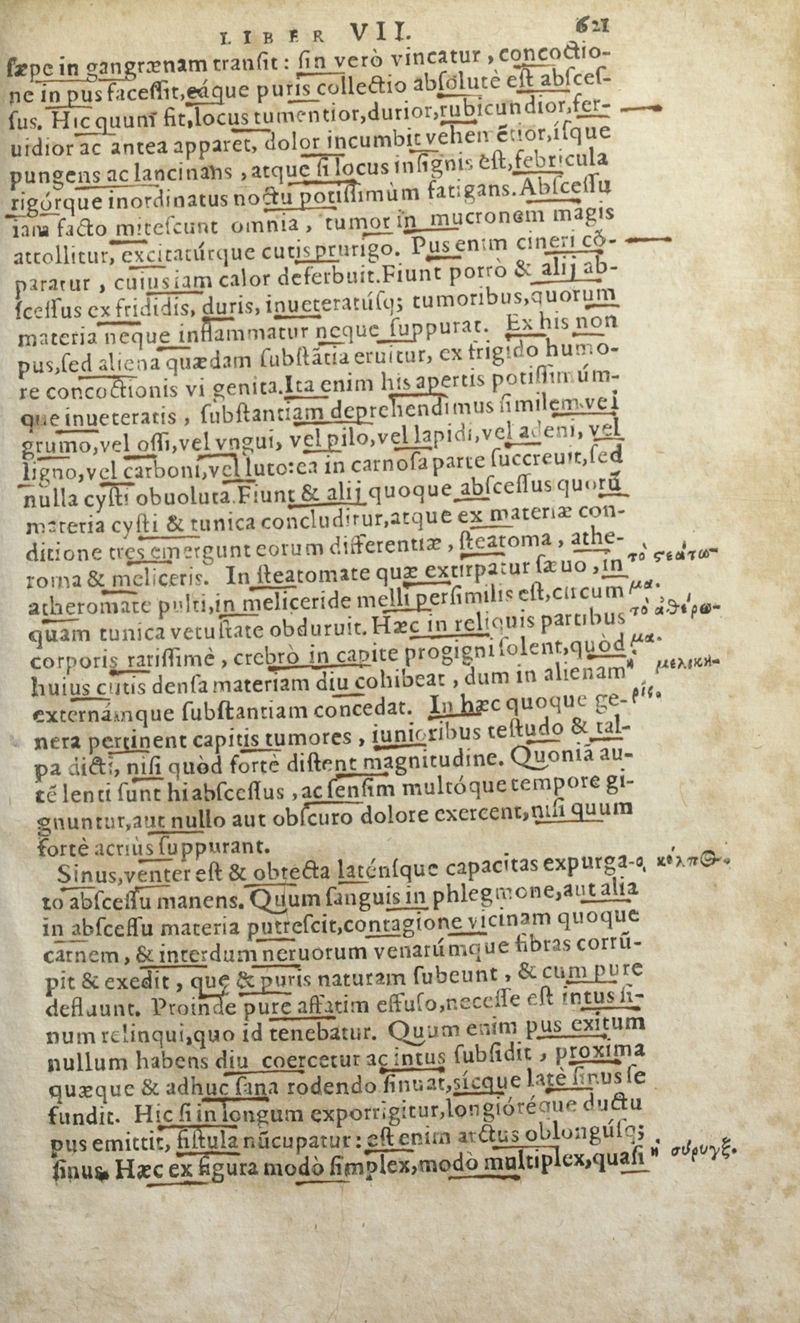 LIBER VII. 621
sæpe in gangrænam transit: sin verò vincatur, concoctio-
ne in pus facessit, eáque puris collectio absolute est absces-
sus. Hic quum fit, locus tumentior, durior, rubicundior, fer-
uidior ac antea apparet, dolor incumbit vehementior, isque
pungens ac lancinans, atque si locus insignis est, febricula
rigórque inordinatus noctu potissimum fatigans. Abscessu
iam facto mitescunt omnia, tumor in mucronem magis
attollitur, excitatúrque cutis prurigo. Pus enim cineri cõ-
paratur, cuius iam calor deferbuit. Fiunt porro & alij ab-
scessus ex frididis, duris, inueteratisq; tumoribus, quorum
materia neque inflammatur neque suppurat. Ex his non
pus, sed aliena quædam substãtia eruitur, ex frigido humo-
re concoctionis vi genita. Ita enim his apertis potissimum-
que inueteratis, substantiam deprehendimus similem vel
grumo, vel ossi, vel vngui, vel pilo, vel lapidi, vel adeni, vel
ligno, vel carboni, vel luto: ea in carnosa parte succreuit, sed
nulla cysti obuoluta. Fiunt & alij quoque abscessus quorũ
materia cysti & tunica concluditur, atque ex materiæ con-
ditione tres emergunt eorum differentiæ, steatoma, athe- τὸ στεάτω-
roma & meliceris. In steatomate quæ extirpatur sæuo, in μα.
atheromate pulti, in meliceride melli persimilis est, circum τὸ ἀθέρω-
quàm tunica vetustate obduruit. Hæc in reliquis partibus μα.
corporis rarissimè, crebrò in capite progigni solent, quòd μελικη-
huius cutis densa materiam diu cohibeat, dum in alienam ρίς.
externámque substantiam concedat. In hæc quoque ge-
nera pertinent capitis tumores, iunioribus testudo & tal-
pa dicti, nisi quòd fortè distent magnitudine. Quonia au-
tẽ lenti sunt hi abscessus, ac sensim multóque tempore gi-
gnuntur, aut nullo aut obscuro dolore exercent, nisi quum
fortè acriùs suppurant.
Sinus, venter est & obtecta laténsque capacitas expurga- ὁ κόλπος.
to abscessu manens. Quum sanguis in phlegmone, aut alia
in abscessu materia putrescit, contagione vicinam quoque
carnem, & interdum neruorum venarúmque fibras corru-
pit & exedit, quę & puris naturam subeunt, & cum pure
defluunt. Proinde pure affatim effuso, necesse est intus si-
num relinqui, quo id tenebatur. Quum enim pus exitum
nullum habens diu coercetur ac intus subsidit, proxima
quæque & adhuc sana rodendo sinuat, sicque latè sinus se
fundit. Hic si in longum exporrigitur, longioréque ductu
pus emittit, fistula nũcupatur: est enim arctus oblongusq;
sinus. Hæc ex figura modò simplex, modo multiplex, quasi ἡ σύριγξ.